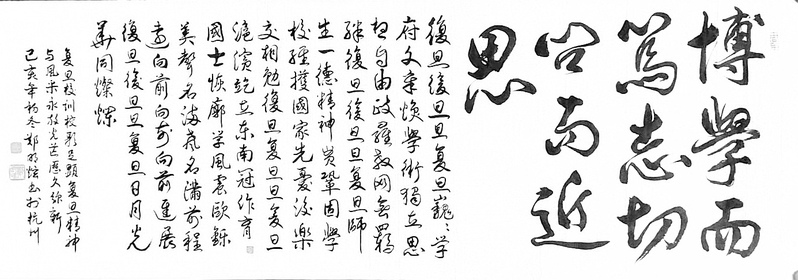 博學而
篤志切
問而近
思
復旦復旦旦復旦巍〻學
府文章煥學術獨立思
想自由政羅教网無羈
絆復旦復旦旦復旦師
生一德精神貫鞏固學
校維護國家先憂後樂
交相勉復旦復旦旦復旦
滬濱屹立東南冠作育
國士恢廓學風震歐鑠
美聲名滿聲名滿前程
遠向前向前向前進展
復旦復旦旦復旦日月光
華同燦爛
復旦校訓校歌足顯復旦精神
与風采永放光芒歷久弥新
己亥年初冬鄭明書於杭州